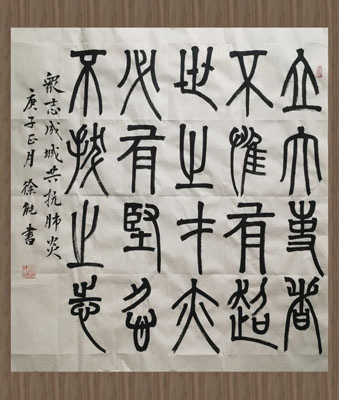 立大事者
不惟有超
世之才亦
必有堅忍
不拔之志
眾志成城共抗肺炎
庚子正月 徐能書